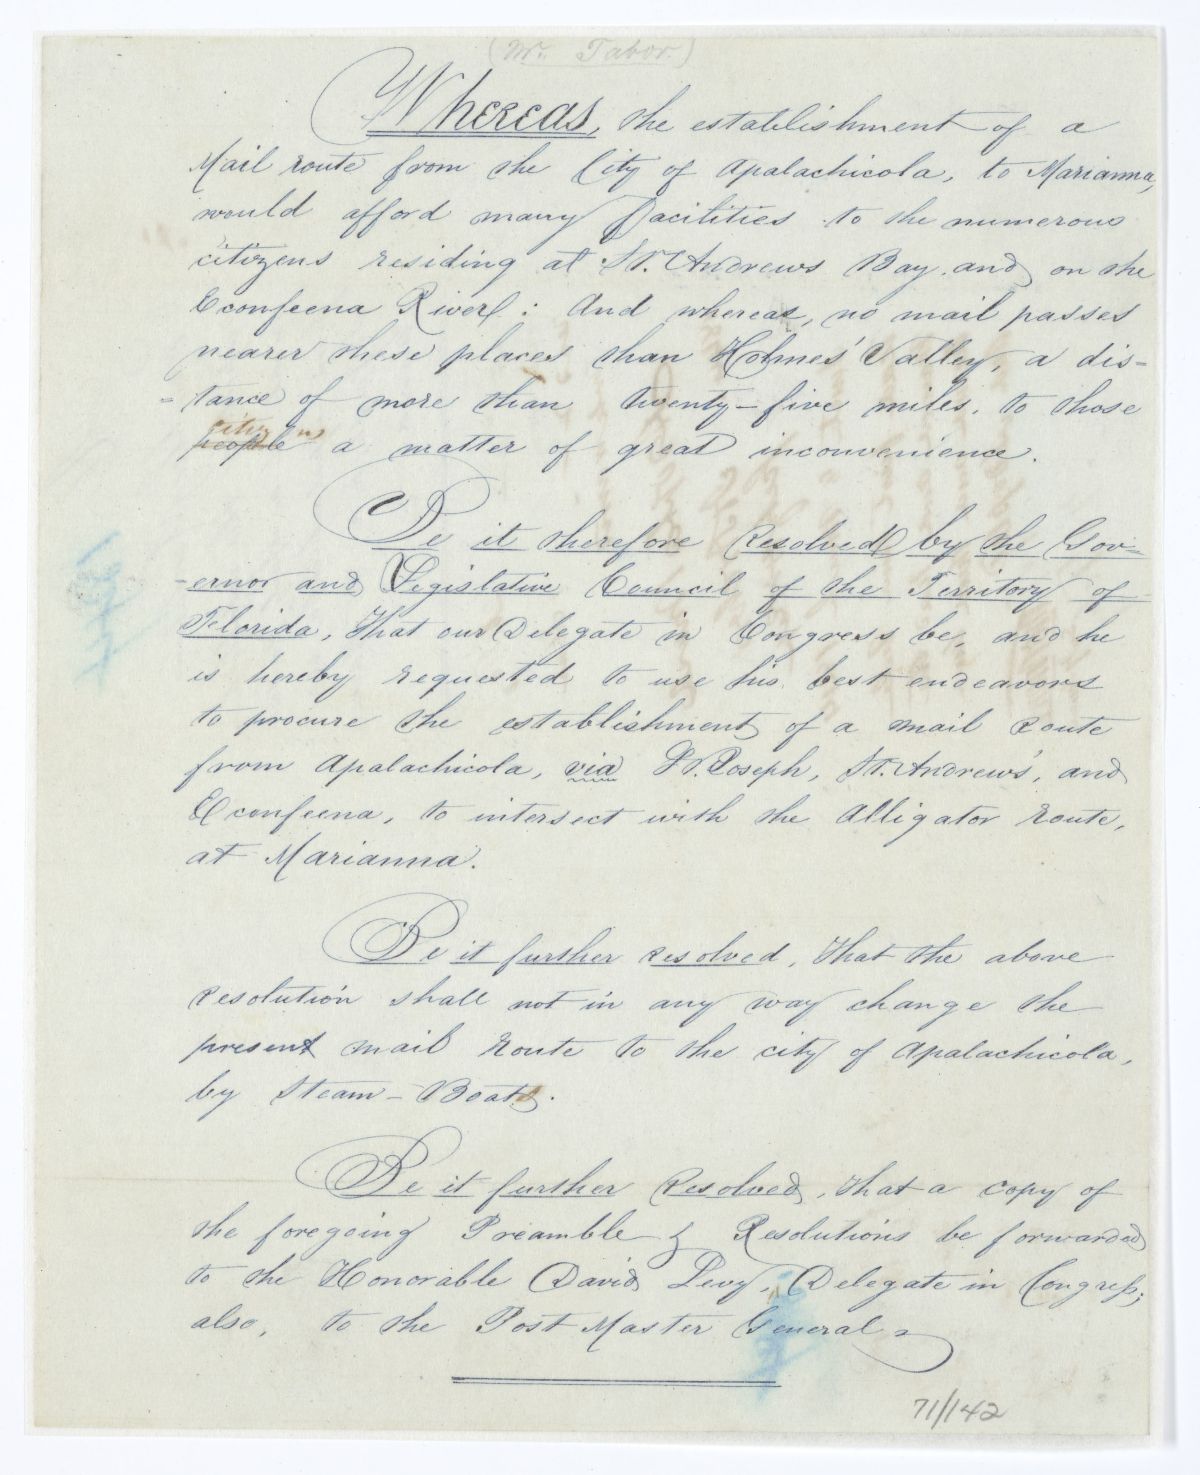 (Mr. Tabor.)
Whereas, the establishment of a
Mail route from the City of Apalachicola, to Marianna,
would afford many facilities to the numerous
citizens residing at St. Andrews Bay, and on the
Econfeena River: And whereas, no mail passes
nearer these places than Holmes' Valley, a dis-
-tance of more than twenty-five miles, to those
citizens
people a matter of great inconvenience.
Be it therefore Resolved by the Gov-
-ernor and Legislative Council of the Territory of
Florida, that our Delegate in Congress be, and he
is hereby requested to use his best endeavors
to procure the establishment of a mail Route
from Apalachicola, via St. Joseph, St. Andrew's, and
Econfeena, to intersect with the Alligator Route,
at Marianna.
Be it further Resolved, that the above
Resolution shall not in any way change the
present mail Route to the city of Apalachicola,
by Steam-Boats.
Be it further Resolved, that a copy of
the foregoing Preamble & Resolutions be forwarded
to the Honorable David Levy, Delegate in Congress;
also, to the Post Master General
71/142